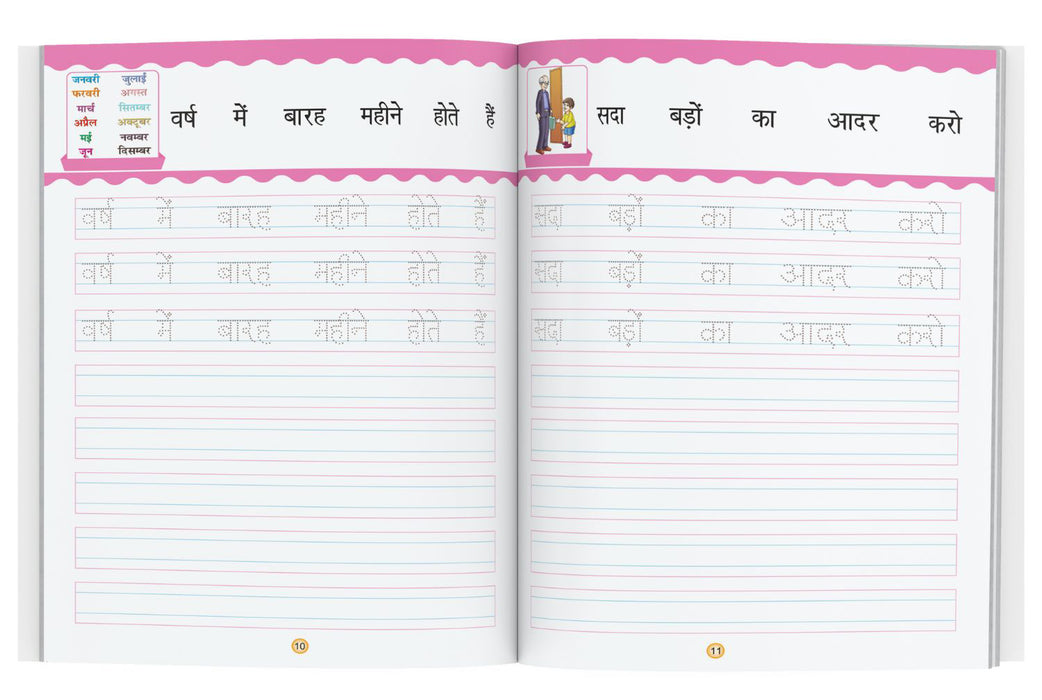 जनवरी जुलाई
फरवरी अगस्त
मार्च सितम्बर
अप्रैल अक्टूबर
मई नवम्बर
जून दिसम्बर
वर्ष में बारह महीने होते हैं
वर्ष में बारह महीने होते हैं
वर्ष में बारह महीने होते हैं
वर्ष में बारह महीने होते हैं
10
सदा बड़ों का आदर करो
सदा बड़ों का आदर करो
सदा बड़ों का आदर करो
सदा बड़ों का आदर करो
11